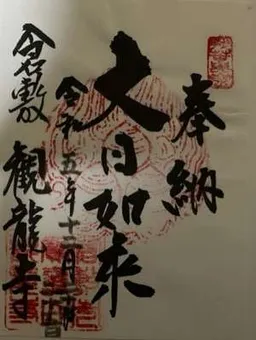 奉納
大日如来
令和五年十二月
倉敷
観龍寺